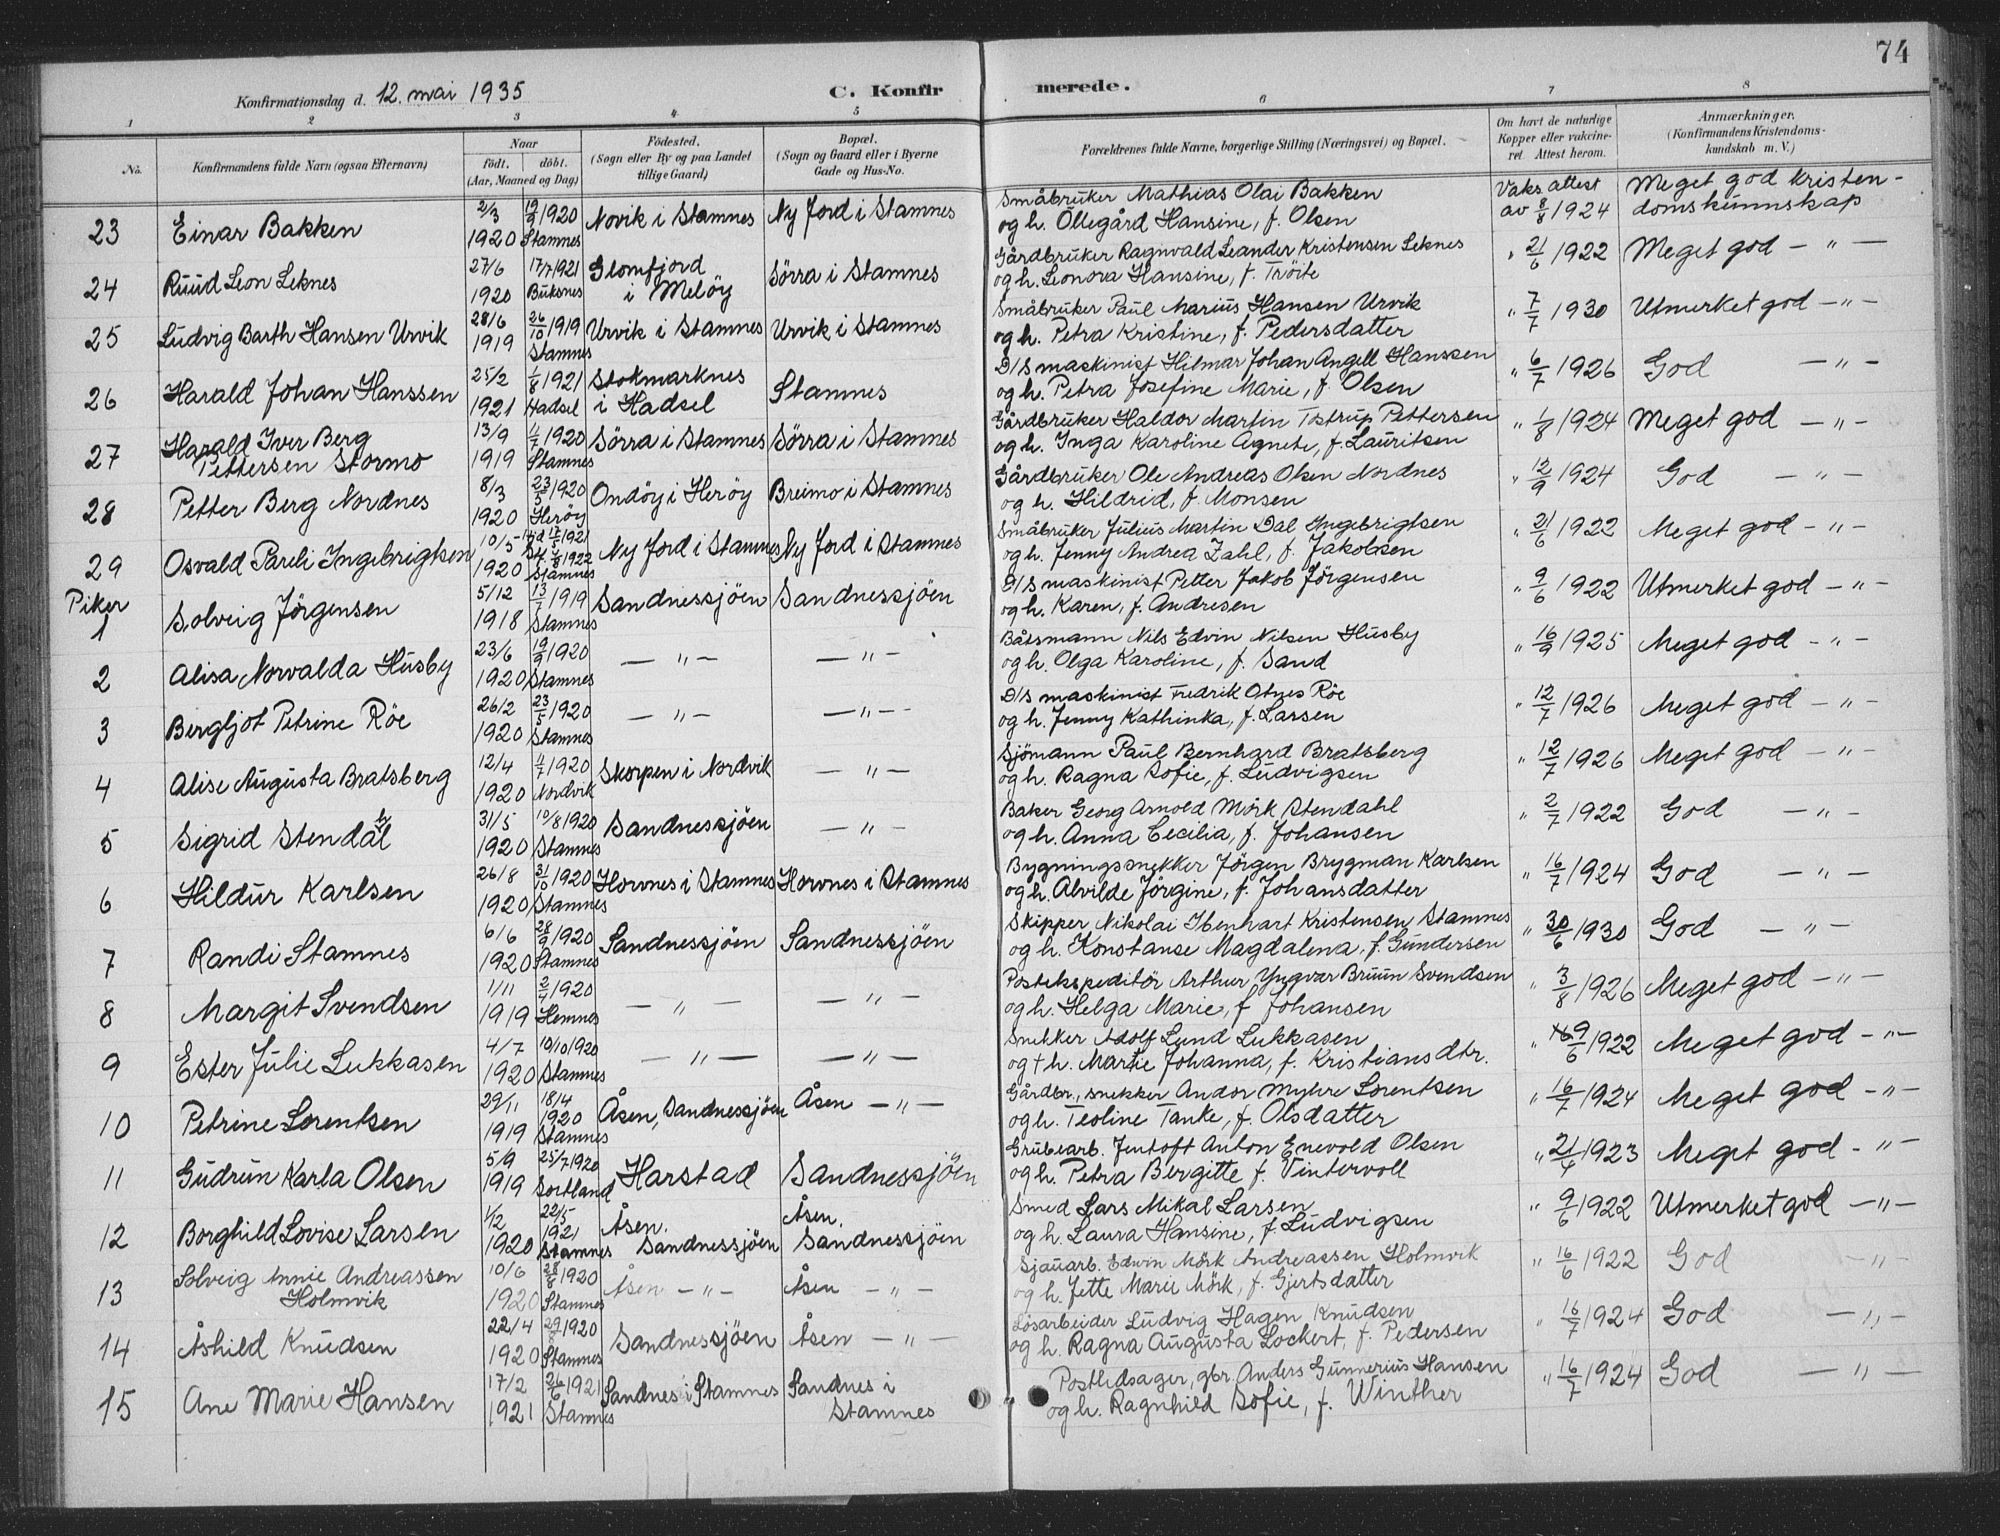 74
Konfirmationsdag d. 12. mai 1935 C. Konfirmerede.
1 2 3 4 5 6 7 8
No. Konfirmandens fulde Navn (ogsaa Efternavn) Naar født. døbt. (Aar, Maaned og Dag) Födested. (Sogn eller By og paa Landet tillige Gaard) Bopæl. (Sogn og Gaard eller i Byerne Gade og Hus-No. Forældrenes fulde Navne, borgerlige Stilling (Næringsvei) og Bopæl. Om havt de naturlige Kopper eller vakcineret. Attest herom. Anmærkninger. (Konfirmandens Kristendomskundskab m. V.)
23 Einar Bakken 2/3 1920 19/9 1920 Stamnes Novik i Stamnes Ny Jord i Stamnes Småbruker Mathias Olai Bakken og h. Ollegård Hansine, f. Olsen Vaks. attest av 8/8 1924 Meget god kristendomskunnskap
24 Ruud Leon Leknes 27/6 1920 17/7 1921 Buksnes Glomfjord i Meløy Sörra i Stamnes Gårdbruker Ragnvald Leander Kristensen Leknes og h. Leonora Hansine, f. Tröite " 21/6 1922 Meget god — " —
25 Ludvig Barth Hansen Urvik 28/6 1919 26/10 1919 Stamnes Urvik i Stamnes Urvik i Stamnes Småbruker Paul Marius Hansen Urvik og h. Petra Kristine, f. Pedersdatter " 7/7 1930 Utmerket god — " —
26 Harald Johan Hanssen 25/2 1921 1/8 1921 Hadsel Stokmarknes i Hadsel Stamnes D/S maskinist Hilmar Johan Angell Hanssen og h. Petra Josefine Marie, f. Olsen " 6/7 1926 God — " —
27 Harald Iver Berg Pettersen Stormo 13/9 1919 11/7 1920 Stamnes Sörra i Stamnes Sörra i Stamnes Gårdbruker Haldor Martin Tostrup Pettersen og h. Inga Karoline Agnete, f. Lauritsen " 1/8 1924 Meget god — " —
28 Petter Berg Nordnes 8/3 1920 23/5 1920 Heröy Ondöy i Heröy Breimo i Stamnes Gårdbruker Ole Andreas Olsen Nordnes og h. Hildrid, f. Monsen " 12/9 1924 God — " —
29 Osvald Pareli Ingebrigtsen 10/5 1920 17/5 1921 1922 Stamnes Ny Jord i Stamnes Ny Jord i Stamnes Småbruker Julius Martin Dal Ingebrigtsen og h. Jenny Andrea Zahl, f. Jakobsen " 21/6 1922 Meget god — " —
Piker
1 Solveig Jörgensen 5/12 1918 13/7 1919 Stamnes Sandnessjöen Sandnessjöen D/S maskinist Petter Jakob Jörgensen og h. Karen, f. Andresen " 9/6 1922 Utmerket god — " —
2 Alisa Norvalda Husby 23/6 1920 19/9 1920 Stamnes — " — — " — Båtsmann Nils Edvin Nilsen Husby og h. Olga Karoline, f. Sand " 16/9 1925 Meget god — " —
3 Bergljot Petrine Röe 26/2 1920 23/5 1920 Stamnes — " — — " — D/S maskinist Fredrik Otnes Röe og h. Jenny Kathinka, f. Larsen " 12/7 1926 Meget god — " —
4 Alise Augusta Bratsberg 12/4 1920 11/7 1920 Nordvik Skorpen i Nordvik — " — Sjömann Paul Bernhard Bratsberg og h. Ragna Sofie, f. Ludvigsen " 12/7 1926 Meget god — " —
5 Sigrid Stendahl 31/5 1920 10/8 1920 Stamnes Sandnessjöen — " — Baker Georg Arnold Mörk Stendahl og h. Anna Cecilia, f. Johansen " 2/7 1922 God — " —
6 Hildur Karlsen 26/8 1920 31/10 1920 Stamnes Horvnes i Stamnes Horvnes i Stamnes Bygningssnekker Jörgen Brygman Karlsen og h. Alvilde Jörgine, f. Johansdatter " 16/7 1924 God — " —
7 Randi Stamnes 6/6 1920 28/9 1920 Stamnes Sandnessjöen Sandnessjöen Skipper Nikolai Ibenhart Kristensen Stamnes og h. Konstanse Magdalena, f. Gundersen " 30/6 1930 God — " —
8 Margit Svendsen 1/11 1919 2/4 1920 Hemnes — " — — " — Postekspeditör Arthur Yngvar Bruun Svendsen og h. Helga Marie, f. Johansen " 3/8 1926 Meget god — " —
9 Ester Julie Lukkasen 4/7 1920 10/10 1920 Stamnes — " — — " — Snekker Adolf Lund Lukkasen og † h. Martie Johanna, f. Kristiansdtr. " 9/6 1922 Meget god — " —
10 Petrine Lorentsen 29/11 1919 18/4 1920 Stamnes Åsen, Sandnessjöen Åsen — " — Gårdbr., snekker Andor Myhre Lorentsen og h. Teoline Tanke, f. Olsdatter " 16/7 1924 Meget god — " —
11 Gudrun Karla Olsen 5/9 1919 25/7 1920 Sortland Harstad Sandnessjöen Grubearb. Jentoft Anton Enevold Olsen og h. Petra Bergitte f. Vintervoll " 21/4 1923 Meget god — " —
12 Borghild Lovise Larsen 1/12 1920 22/5 1921 Stamnes Åsen. Sandnessjöen Åsen. Sandnessjöen Smed Lars Mikal Larsen og h. Laura Hansine, f. Ludvigsen " 9/6 1922 Utmerket god — " —
13 Solveig Annie Andreassen Holmvik 10/6 1920 28/8 1920 Stamnes Åsen — " — Åsen — " — Sjauarb. Edwin Mörk Andreassen Holmvik og h. Jette Marie Mörk, f. Gjertsdatter " 16/6 1922 God — " —
14 Åshild Knudsen 22/4 1920 29/8 1920 Stamnes Sandnessjöen Åsen — " — Lösarbeider Ludvig Hagen Knudsen og h. Ragna Augusta Lockert, f. Pedersen " 16/7 1924 God — " —
15 Ane Marie Hansen 17/2 1921 26/6 1921 Stamnes Sandnes i Stamnes Sandnes i Stamnes Postledsager, gbr. Anders Gunnerius Hansen og h. Ragnhild Sofie, f. Winther " 16/7 1924 God — " —